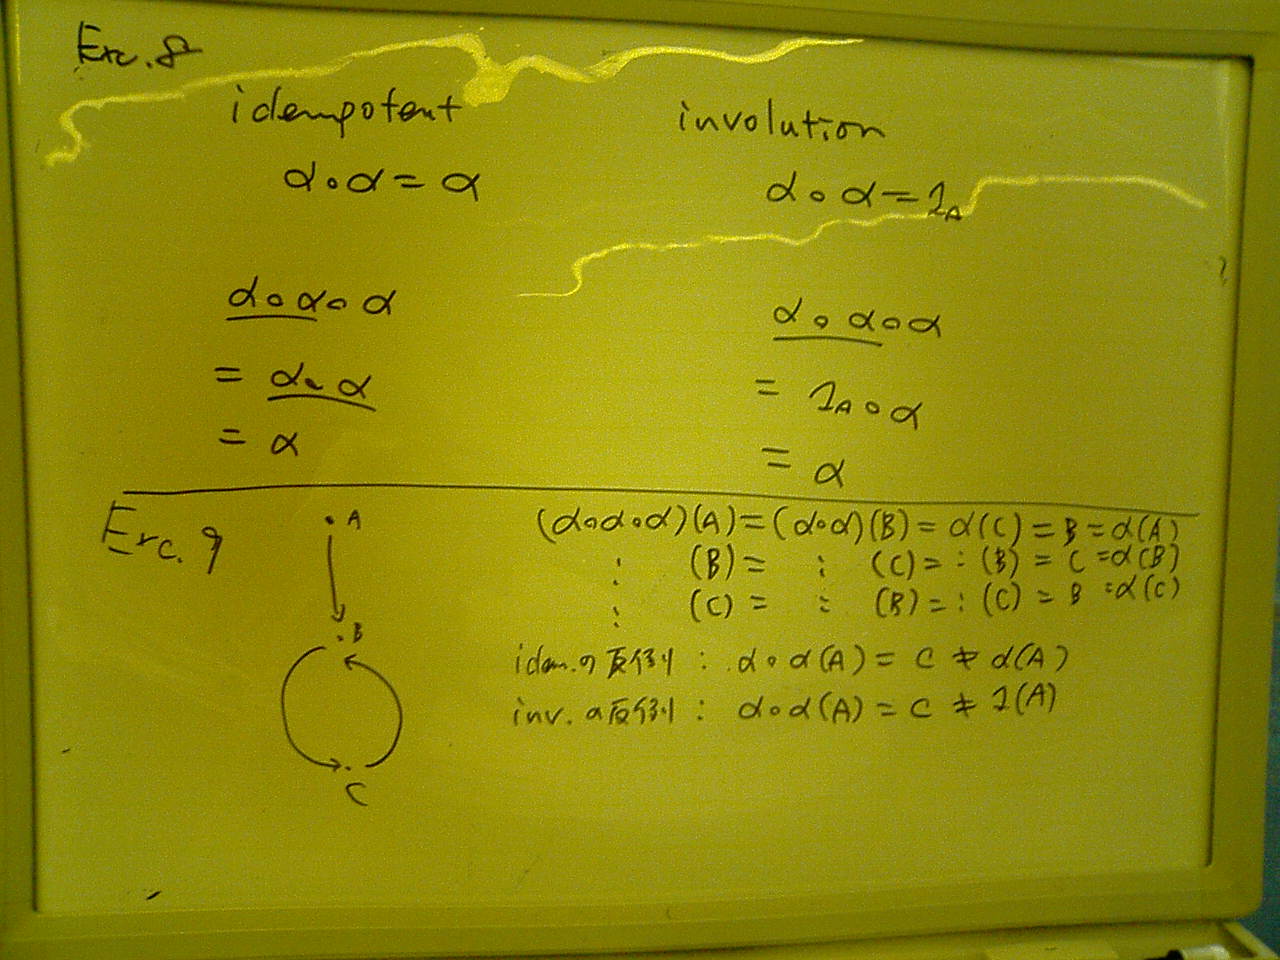 Exc. 8
idempotent
α∘α = α
α∘α∘α
= α∘α
= α
involution
α∘α = 1_A
α∘α∘α
= 1_A∘α
= α
Exc. 9
A
B
C
(α∘α∘α)(A) = (α∘α)(B) = α(C) = B = α(A)
⋮ (B) = ⋮ (C) = ⋮ (B) = C = α(B)
⋮ (C) = ⋮ (B) = ⋮ (C) = B = α(C)
idem.の反例 : α∘α(A) = C ≠ α(A)
inv.の反例 : α∘α(A) = C ≠ 1(A)